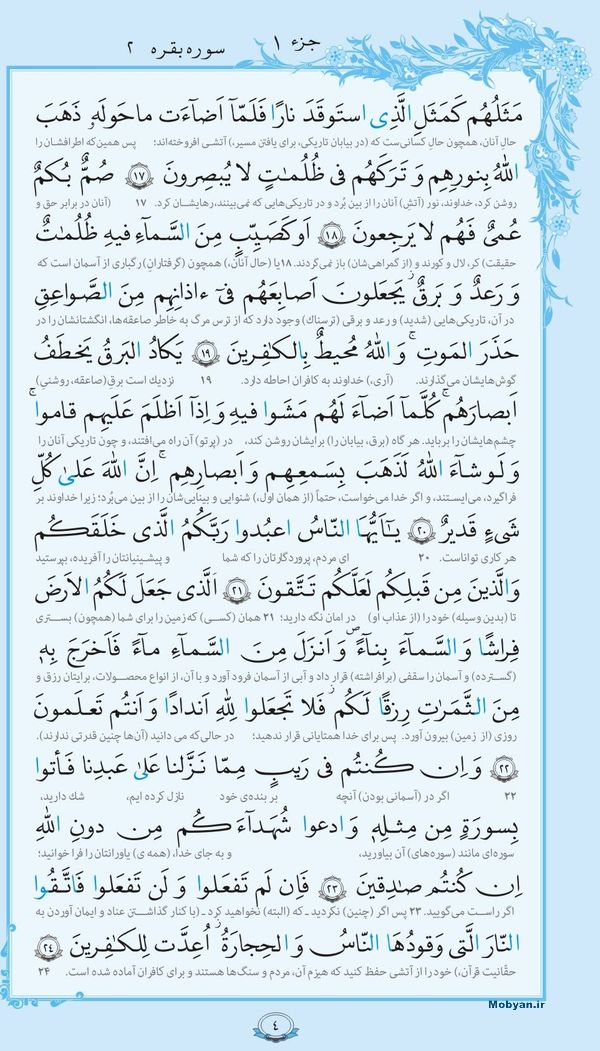 جزء ۱
سوره بقره ۲
مَثَلُهُم كَمَثَلِ الَّذِى استَوقَدَ نارًا فَلَمّآ اَضآءَت ماحَولَهُ ذَهَبَ
حالِ آنان، همچون حالِ کسانی‌ست که (در بیابان تاریکی، برای یافتن مسیر،) آتشی افروخته‌اند؛ پس همین‌که اطرافشان را
اللهُ بِنورِهِم وَ تَرَكَهُم فى ظُلُماتٍ لا يُبصِرونَ ۱۷ صُمٌّ بُكمٌ
روشن کرد، خداوند، نور (آتشِ) آنان را از بین بُرد و در تاریکی‌هایی که نمی‌بینند، رهایشان کرد. ۱۷ (آنان در برابر حق و
عُمىٌ فَهُم لا يَرجِعونَ ۱۸ اَو كَصَيِّبٍ مِنَ السَّمآءِ فيهِ ظُلُماتٌ
حقیقت) کر، لال و کورند و (از گمراهی‌شان) باز نمی‌گردند. ۱۸ یا (حال آنان،) همچون (گرفتارانِ) رگباری از آسمان است که
وَ رَعدٌ وَ بَرقٌ يَجعَلونَ اَصابِعَهُم فى ءاذانِهِم مِنَ الصَّواعِقِ
در آن، تاریکی‌هایی (شدید) و رعد و برقی (ترسناک) وجود دارد که از ترس مرگ به خاطر صاعقه‌ها، انگشتانشان را در
حَذَرَ المَوتِ ۚ وَ اللهُ مُحيطٌ بِالكافِرينَ ۱۹ يَكادُ البَرقُ يَخطَفُ
گوش‌هایشان می‌گذارند. (آری،) خداوند به کافران احاطه دارد. ۱۹ نزدیک است برقِ (صاعقه، روشنیِ)
اَبصارَهُم ۖ كُلَّمآ اَضآءَ لَهُم مَشَوا فيهِ وَ اِذآ اَظلَمَ عَلَيهِم قاموا ۚ
چشم‌هایشان را برباید. هر گاه (برق، بیابان را) برایشان روشن کند، در (پرتو) آن راه می‌افتند، و چون تاریکی آنان را
وَ لَو شآءَ اللهُ لَذَهَبَ بِسَمعِهِم وَ اَبصارِهِم ۚ اِنَّ اللهَ عَلىٰ كُلِّ
فراگیرد، می‌ایستند، و اگر خدا می‌خواست، حتماً (از همان اول،) شنوایی و بینایی‌شان را از بین می‌بُرد؛ زیرا خداوند بر
شَىءٍ قَديرٌ ۲۰ يآ اَيُّهَا النّاسُ اعبُدوا رَبَّكُمُ الَّذى خَلَقَكُم
هر کاری تواناست. ۲۰ ای مردم، پروردگارتان را که شما و پیشینیانتان را آفریده، بپرستید
وَ الَّذينَ مِن قَبلِكُم لَعَلَّكُم تَتَّقونَ ۲۱ اَلَّذى جَعَلَ لَكُمُ الاَرضَ
تا (بدین وسیله) خود را (از عذاب او) در امان نگه دارید؛ ۲۱ همان (کسی) که زمین را برای شما (همچون) بستری
فِراشًا وَ السَّمآءَ بِنآءً وَ اَنزَلَ مِنَ السَّمآءِ مآءً فَاَخرَجَ بِهِ
(گسترده) و آسمان را سقفی (برافراشته) قرار داد و آبی از آسمان فرود آورد و با آن، از انواع محصولات، برایتان رزق و
مِنَ الثَّمَراتِ رِزقًا لَكُم ۖ فَلا تَجعَلوا لِلّهِ اَندادًا وَ اَنتُم تَعلَمونَ
روزی (از زمین) بیرون آورد. پس برای خدا همتایانی قرار ندهید؛ در حالی‌که می دانید (آن‌ها چنین قدرتی ندارند).
۲۲ وَ اِن كُنتُم فى رَيبٍ مِمّا نَزَّلنا عَلىٰ عَبدِنا فَأتوا
۲۲ اگر در (آسمانی بودن) آنچه بر بنده‌ی خود نازل کرده ایم، شك دارید،
بِسورَةٍ مِن مِثلِهِ وَ ادعوا شُهَدآءَكُم مِن دونِ اللهِ
سوره‌ای مانند (سوره‌های) آن بیاورید، و به جای خدا، (همه ی) یاورانتان را فرا خوانید؛
اِن كُنتُم صادِقينَ ۲۳ فَاِن لَم تَفعَلوا وَ لَن تَفعَلوا فَاتَّقُوا
اگر راست می‌گویید. ۲۳ پس اگر (چنین) نکردید ـ که (البته) نخواهید کرد ـ (با کنار گذاشتن عناد و ایمان آوردن به
النّارَ الَّتى وَقودُهَا النّاسُ وَ الحِجارَةُ ۖ اُعِدَّت لِلكافِرينَ ۲۴
حقّانیت قرآن،) خود را از آتشی حفظ کنید که هیزم آن، مردم و سنگ‌ها هستند و برای کافران آماده شده است. ۲۴
Mobyan.ir
٤